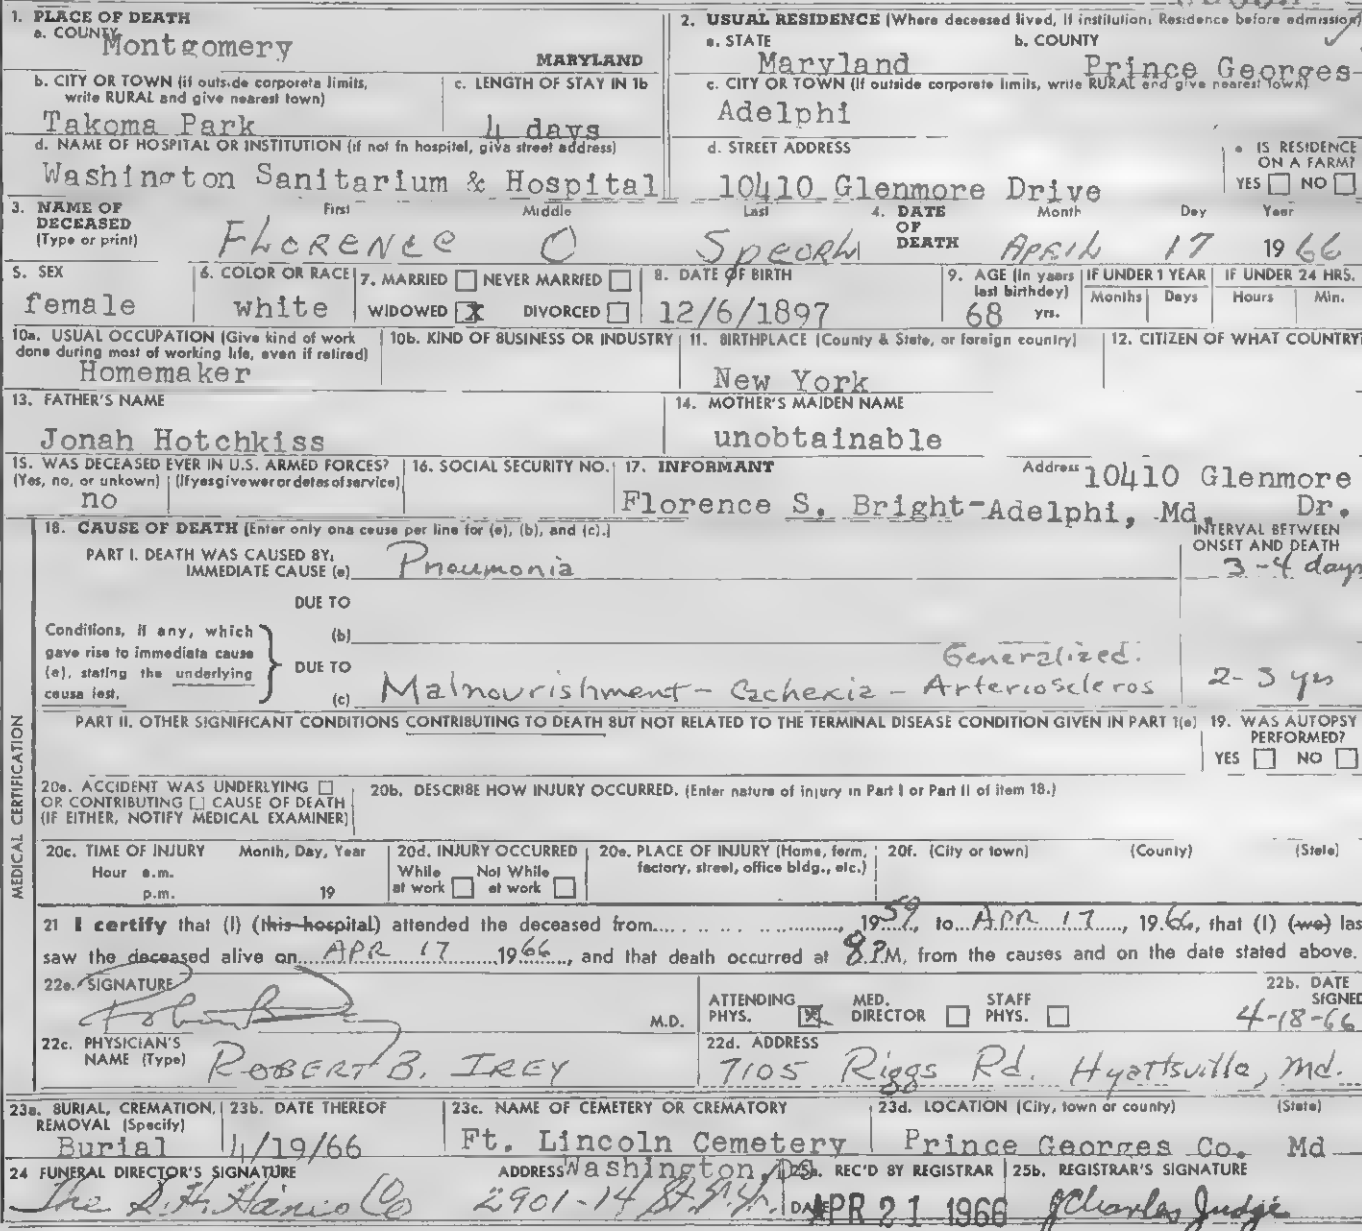 1. PLACE OF DEATH
a. COUNTY Montgomery MARYLAND
2. USUAL RESIDENCE (Where deceased lived, If institution: Residence before admission)
a. STATE Maryland b. COUNTY Prince Georges
b. CITY OR TOWN (if outside corporate limits, write RURAL and give nearest town)
Takoma Park
c. LENGTH OF STAY IN 1b
4 days
c. CITY OR TOWN (If outside corporate limits, write RURAL and give nearest town)
Adelphi
d. NAME OF HOSPITAL OR INSTITUTION (if not in hospital, give street address)
Washington Sanitarium & Hospital
d. STREET ADDRESS
10410 Glenmore Drive
e. IS RESIDENCE ON A FARM?
YES NO
3. NAME OF DECEASED (Type or print)
First Middle Last
FLORENCE O
4. DATE OF DEATH
Month Day Year
APRIL 17 1966
5. SEX
female
6. COLOR OR RACE
white
7. MARRIED NEVER MARRIED
WIDOWED X DIVORCED
8. DATE OF BIRTH
12/6/1897
9. AGE (In years last birthday)
68 yrs.
IF UNDER 1 YEAR
Months Days
IF UNDER 24 HRS.
Hours Min.
10a. USUAL OCCUPATION (Give kind of work done during most of working life, even if retired)
Homemaker
10b. KIND OF BUSINESS OR INDUSTRY
11. BIRTHPLACE (County & State, or foreign country)
New York
12. CITIZEN OF WHAT COUNTRY?
13. FATHER'S NAME
Jonah Hotchkiss
14. MOTHER'S MAIDEN NAME
unobtainable
15. WAS DECEASED EVER IN U.S. ARMED FORCES?
(Yes, no, or unkown) (If yes give war or dates of service)
no
16. SOCIAL SECURITY NO.
17. INFORMANT Address 10410 Glenmore
Florence S. Bright-Adelphi, Md. Dr.
18. CAUSE OF DEATH (Enter only one cause per line for (a), (b), and (c).)
INTERVAL BETWEEN ONSET AND DEATH
PART I. DEATH WAS CAUSED BY:
IMMEDIATE CAUSE (a) Pneumonia 3-4 days
DUE TO
Conditions, if any, which gave rise to immediate cause (a), stating the underlying cause last.
(b)
DUE TO Generalized.
(c) Malnourishment - Cachexia - Arterioscleros 2-3 yrs
PART II. OTHER SIGNIFICANT CONDITIONS CONTRIBUTING TO DEATH BUT NOT RELATED TO THE TERMINAL DISEASE CONDITION GIVEN IN PART 1(a)
19. WAS AUTOPSY PERFORMED?
YES NO
MEDICAL CERTIFICATION
20a. ACCIDENT WAS UNDERLYING
OR CONTRIBUTING CAUSE OF DEATH
(IF EITHER, NOTIFY MEDICAL EXAMINER)
20b. DESCRIBE HOW INJURY OCCURRED. (Enter nature of injury in Part I or Part II of item 18.)
20c. TIME OF INJURY Month, Day, Year
Hour a.m.
p.m. 19
20d. INJURY OCCURRED
While at work Not While at work
20e. PLACE OF INJURY (Home, farm, factory, street, office bldg., etc.)
20f. (City or town) (County) (State)
21 I certify that (I) (this hospital) attended the deceased from 1959, to APR 17, 1966, that (I) (we) las
saw the deceased alive on APR 17 1966, and that death occurred at 8 P.M, from the causes and on the date stated above.
22a. SIGNATURE
M.D.
ATTENDING PHYS. X MED. DIRECTOR STAFF PHYS.
22b. DATE SIGNED
4-18-66
22c. PHYSICIAN'S NAME (Type) ROBERT B. IREY
22d. ADDRESS
7105 Riggs Rd. Hyattsville, Md.
23a. BURIAL, CREMATION, REMOVAL (Specify)
Burial
23b. DATE THEREOF
4/19/66
23c. NAME OF CEMETERY OR CREMATORY
Ft. Lincoln Cemetery
23d. LOCATION (City, town or county) (State)
Prince Georges Co. Md
24 FUNERAL DIRECTOR'S SIGNATURE
The S.H. Hines Co
ADDRESS Washington, DC
2901-14 St. N.W.
25a. REC'D BY REGISTRAR
DATE APR 21 1966
25b. REGISTRAR'S SIGNATURE
J Charles Judge